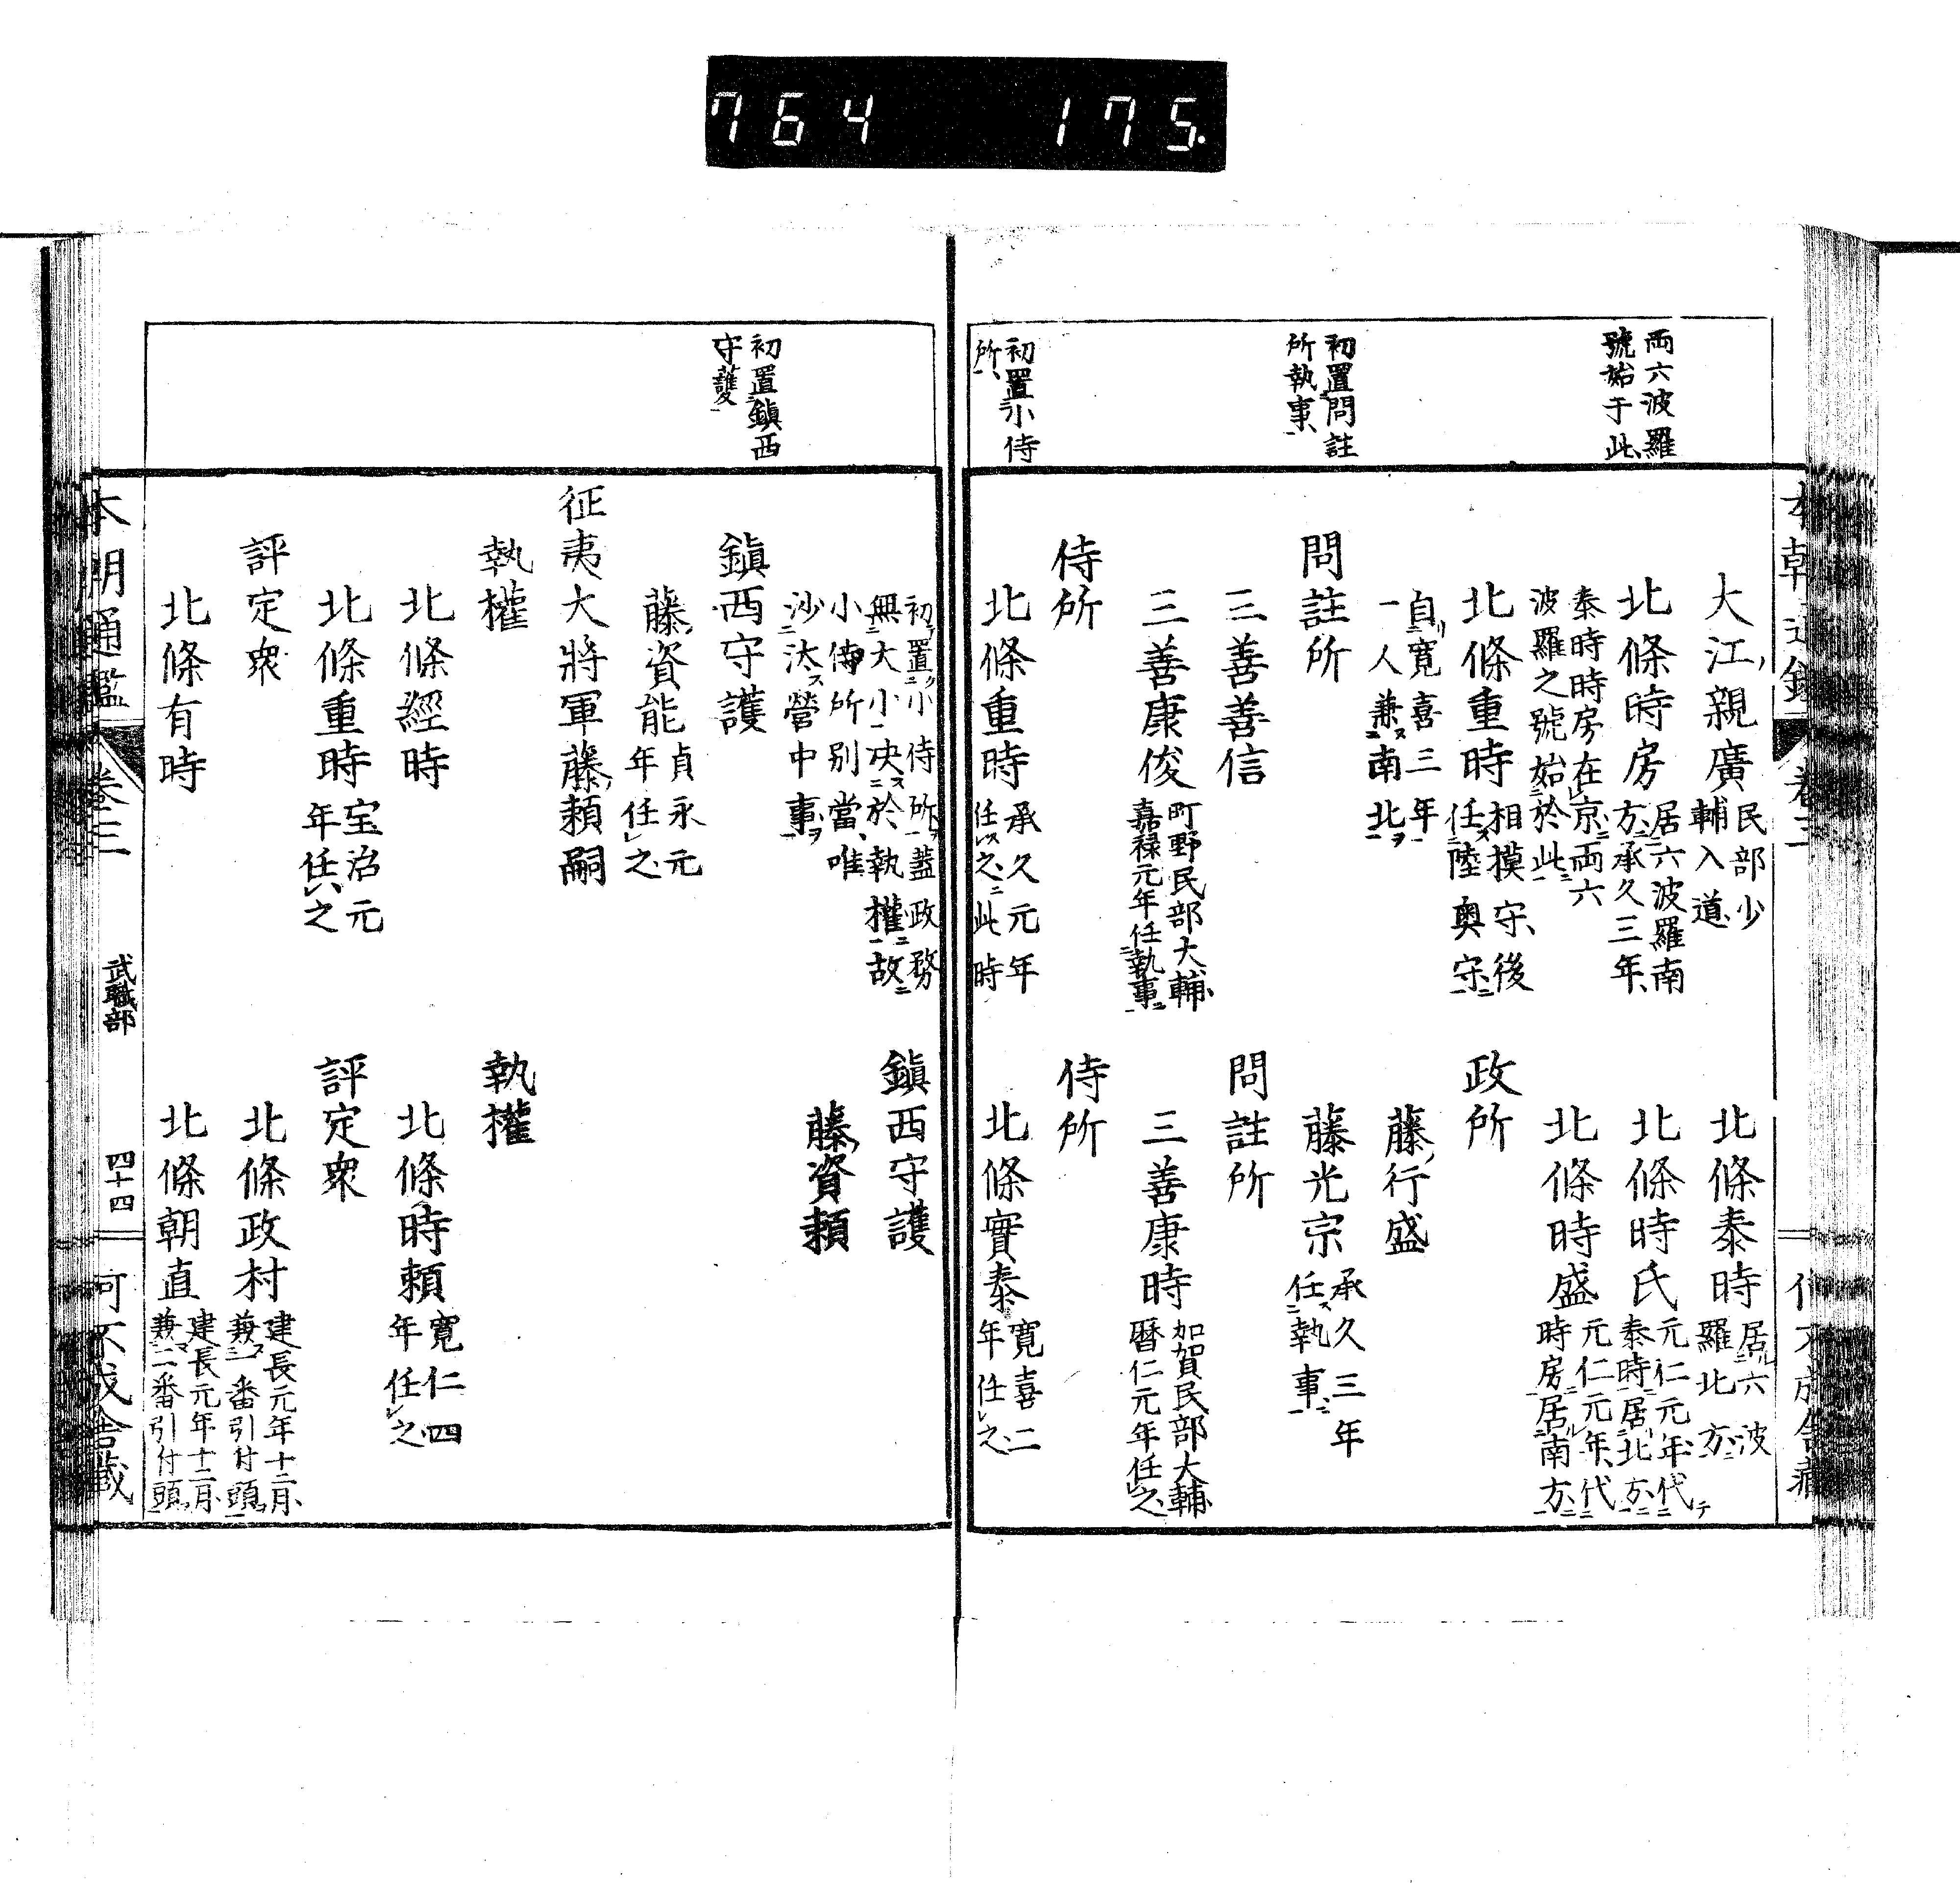 764 175.
兩六波羅
號始于此
初置問註
所執事
初置小侍
所
大江親廣
民部少
輔入道
北條泰時
居六波
羅北方
北條時房
居六波羅南
方承久三年
泰時時房在京兩六
波羅之號始於此
北條時氏
元仁元年代
泰時居北方
北條時盛
元仁元年代
時房居南方
北條重時
相模守後
任陸奥守
自寛喜三年
一人兼南北
政所
藤行盛
問註所
藤光宗
承久三年
任執事
三善善信
問註所
三善康俊
町野民部大輔
嘉禄元年任執事
三善康時
加賀民部大輔
暦仁元年任之
侍所
侍所
北條重時
承久元年
任之此時
北條實泰
寛喜二
年任之
初置鎭西
守護
初置小侍所蓋政務
無大小决於執權故
小侍所別當唯
沙汰營中事
鎭西守護
鎭西守護
藤資頼
藤資能
貞永元
年任之
征夷大將軍藤頼嗣
執權
執權
北條經時
北條時頼
寛仁四
年任之
北條重時
宝治元
年任之
評定衆
評定衆
北條政村
建長元年十二月
兼一番引付頭
北條有時
北條朝直
建長元年十二月
兼二番引付頭
本朝通鑑
卷三
武職部
四十四